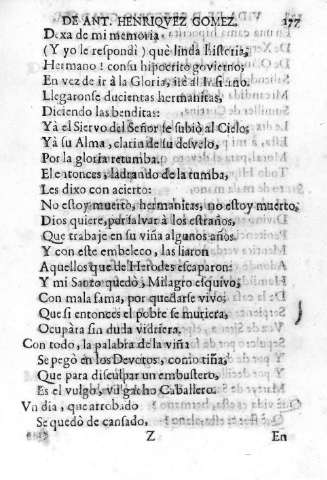 DE ANT. HENRIQVEZ GOMEZ. 177
Dexa de mi memoria
(Y yo le respondì) què linda historia,
Hermano! con su hipocrito govierno;
En vez de ir à la Gloria, irè al Infierno.
Llegaronse ducientas hermanitas,
Diciendo las benditas:
Yà el Siervo del Señor se subiò al Cielo;
Yà su Alma, clarin de su desvelo,
Por la gloria retumba.
El entonces, ladrando de la tumba,
Les dixo con acierto:
No estoy muerto, hermanitas, no estoy muerto,
Dios quiere, por salvar à los estraños,
Que trabaje en su viña algunos años.
Y con este embeleco, las liaron
Aquellos que de Herodes escaparon:
Y mi Santo quedò, Milagro esquivo;
Con mala fama, por quedarse vivo;
Que si entonces el pobre se muriera,
Ocupàra sin duda vidriera.
Con todo, la palabra de la viña
Se pegò en los Devotos, como tiña,
Que para disculpar un embustero,
Es el vulgo, vulgacho Caballero.
Vn dia, que arrobado
Se quedò de cansado,
Z En